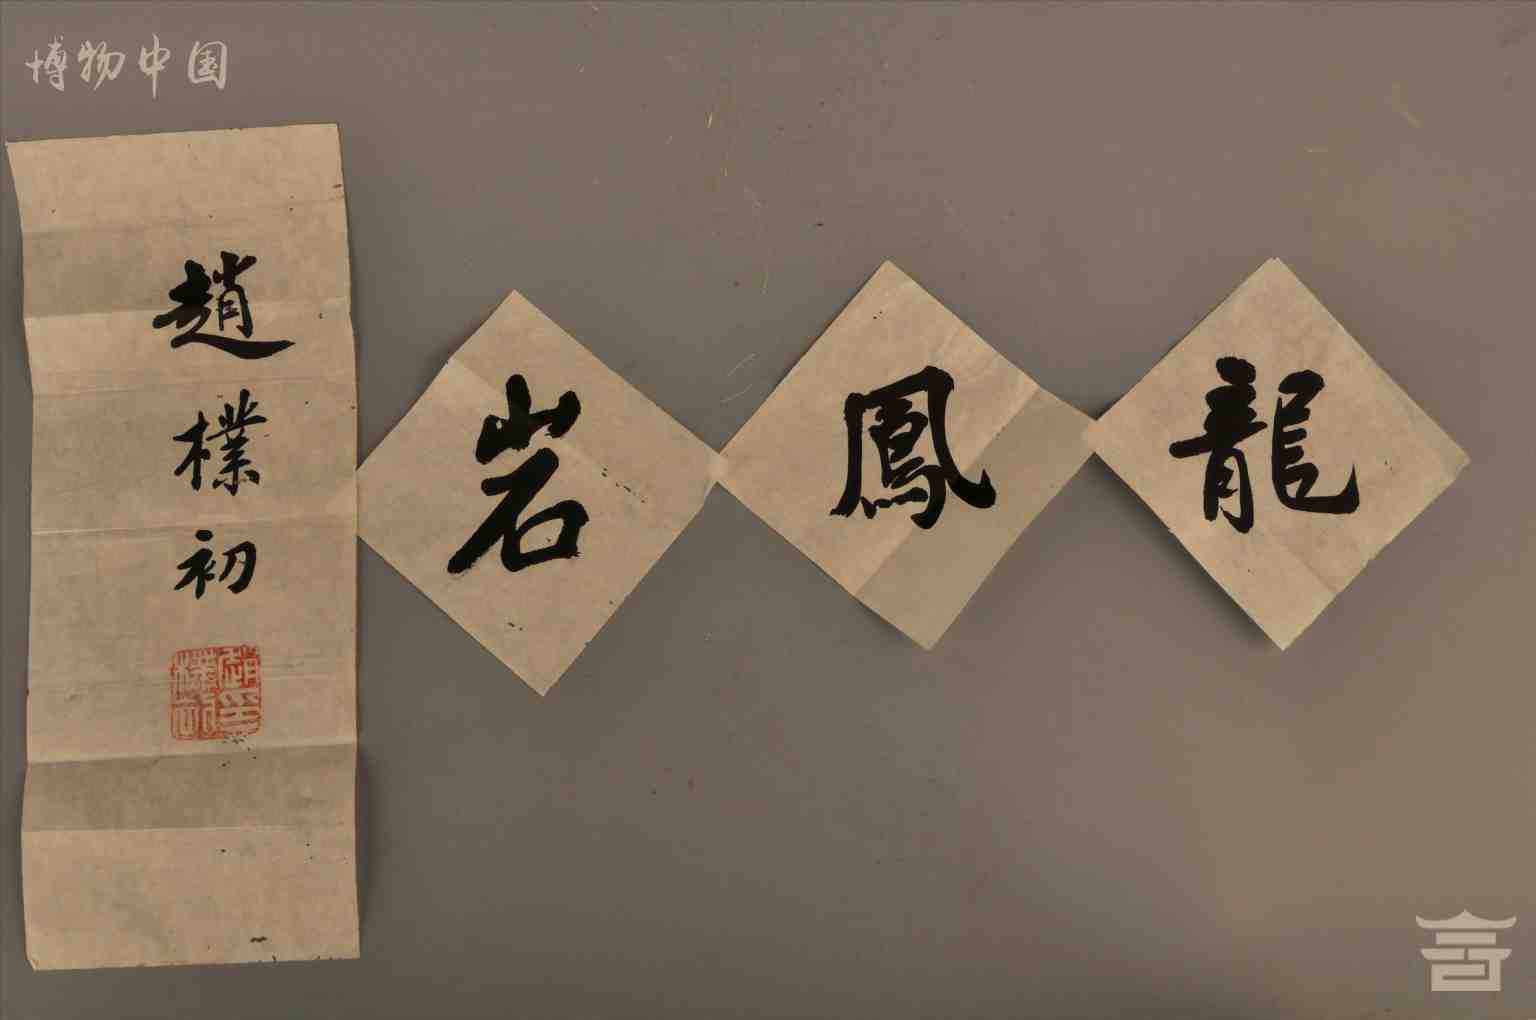 博物中国
龍鳳岩
趙樸初
趙樸初印